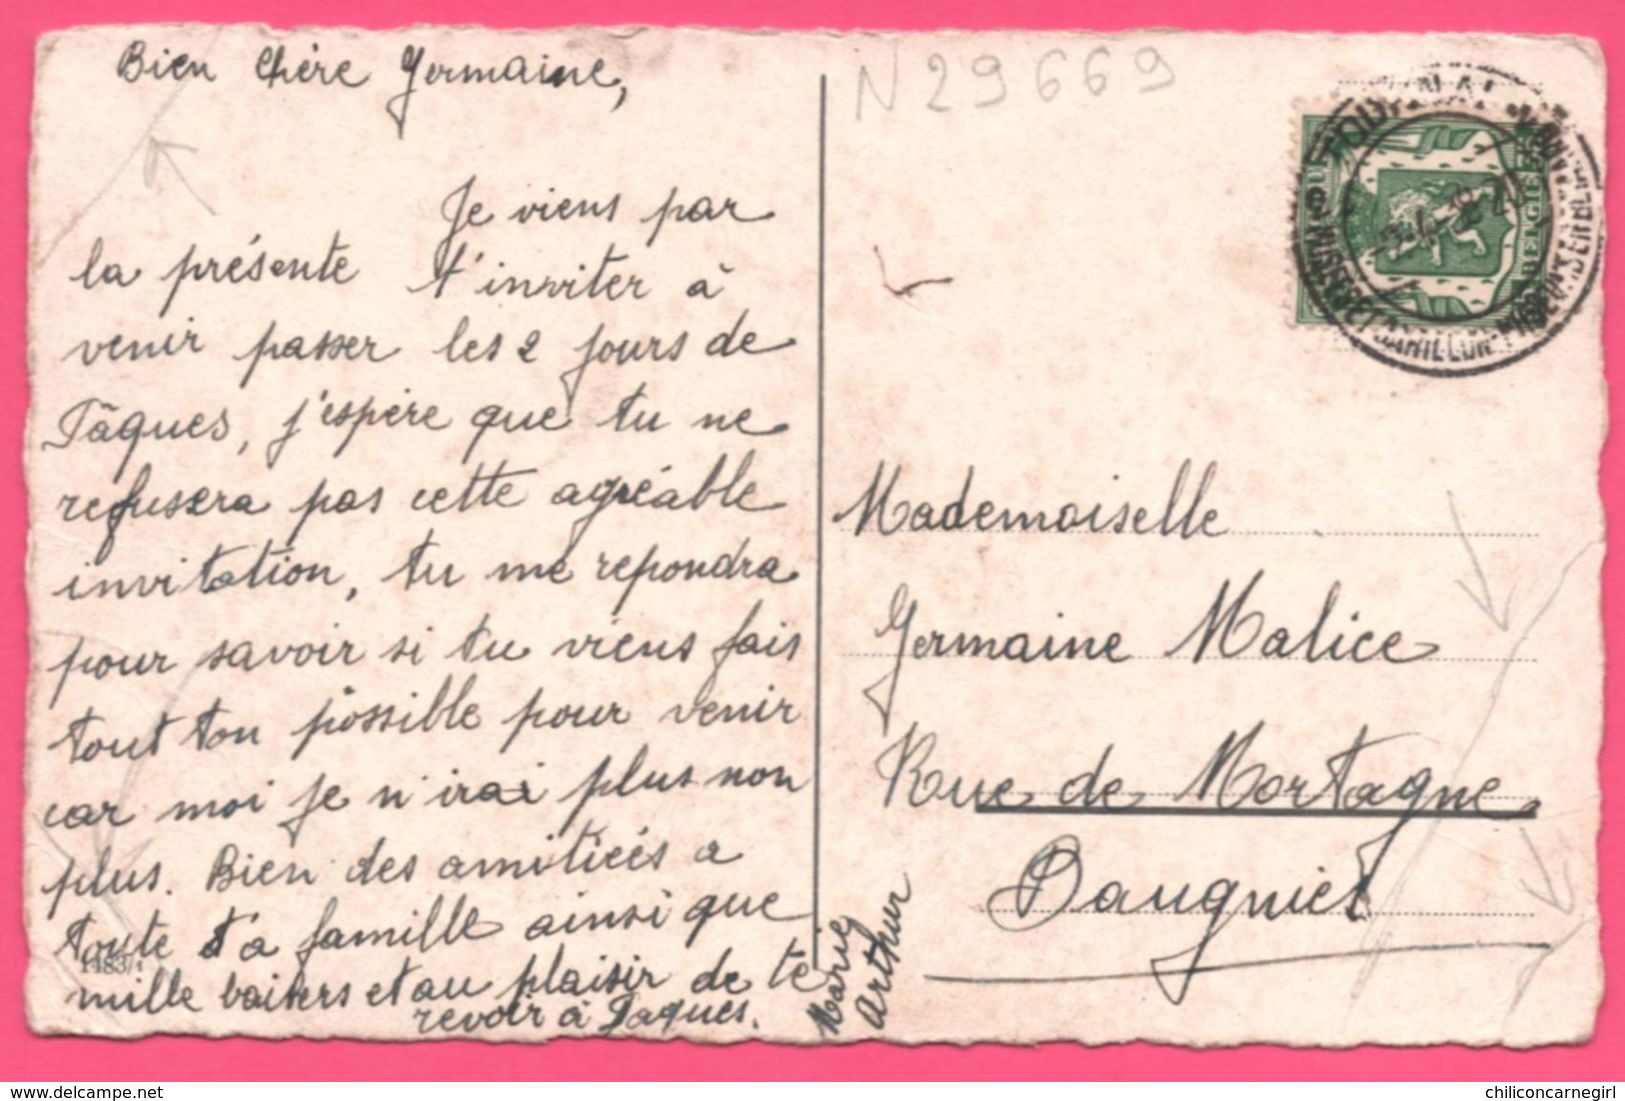 Bien Chère Germaine,
Je viens par
la présente t'inviter à
venir passer les 2 jours de
Pâques, j'espère que tu ne
refusera pas cette agréable
invitation, tu me repondra
pour savoir si tu viens fais
tout ton possible pour venir
car moi je n'irai plus non
plus. Bien des amitiées a
toute ta famille ainsi que
mille baisers et au plaisir de te
revoir à Paques.
Marie
Arthur
1483/1
N29669
BELGIE
Mademoiselle
Germaine Malice
Rue de Mortagne
Baugniet
chiliconcarnegirl